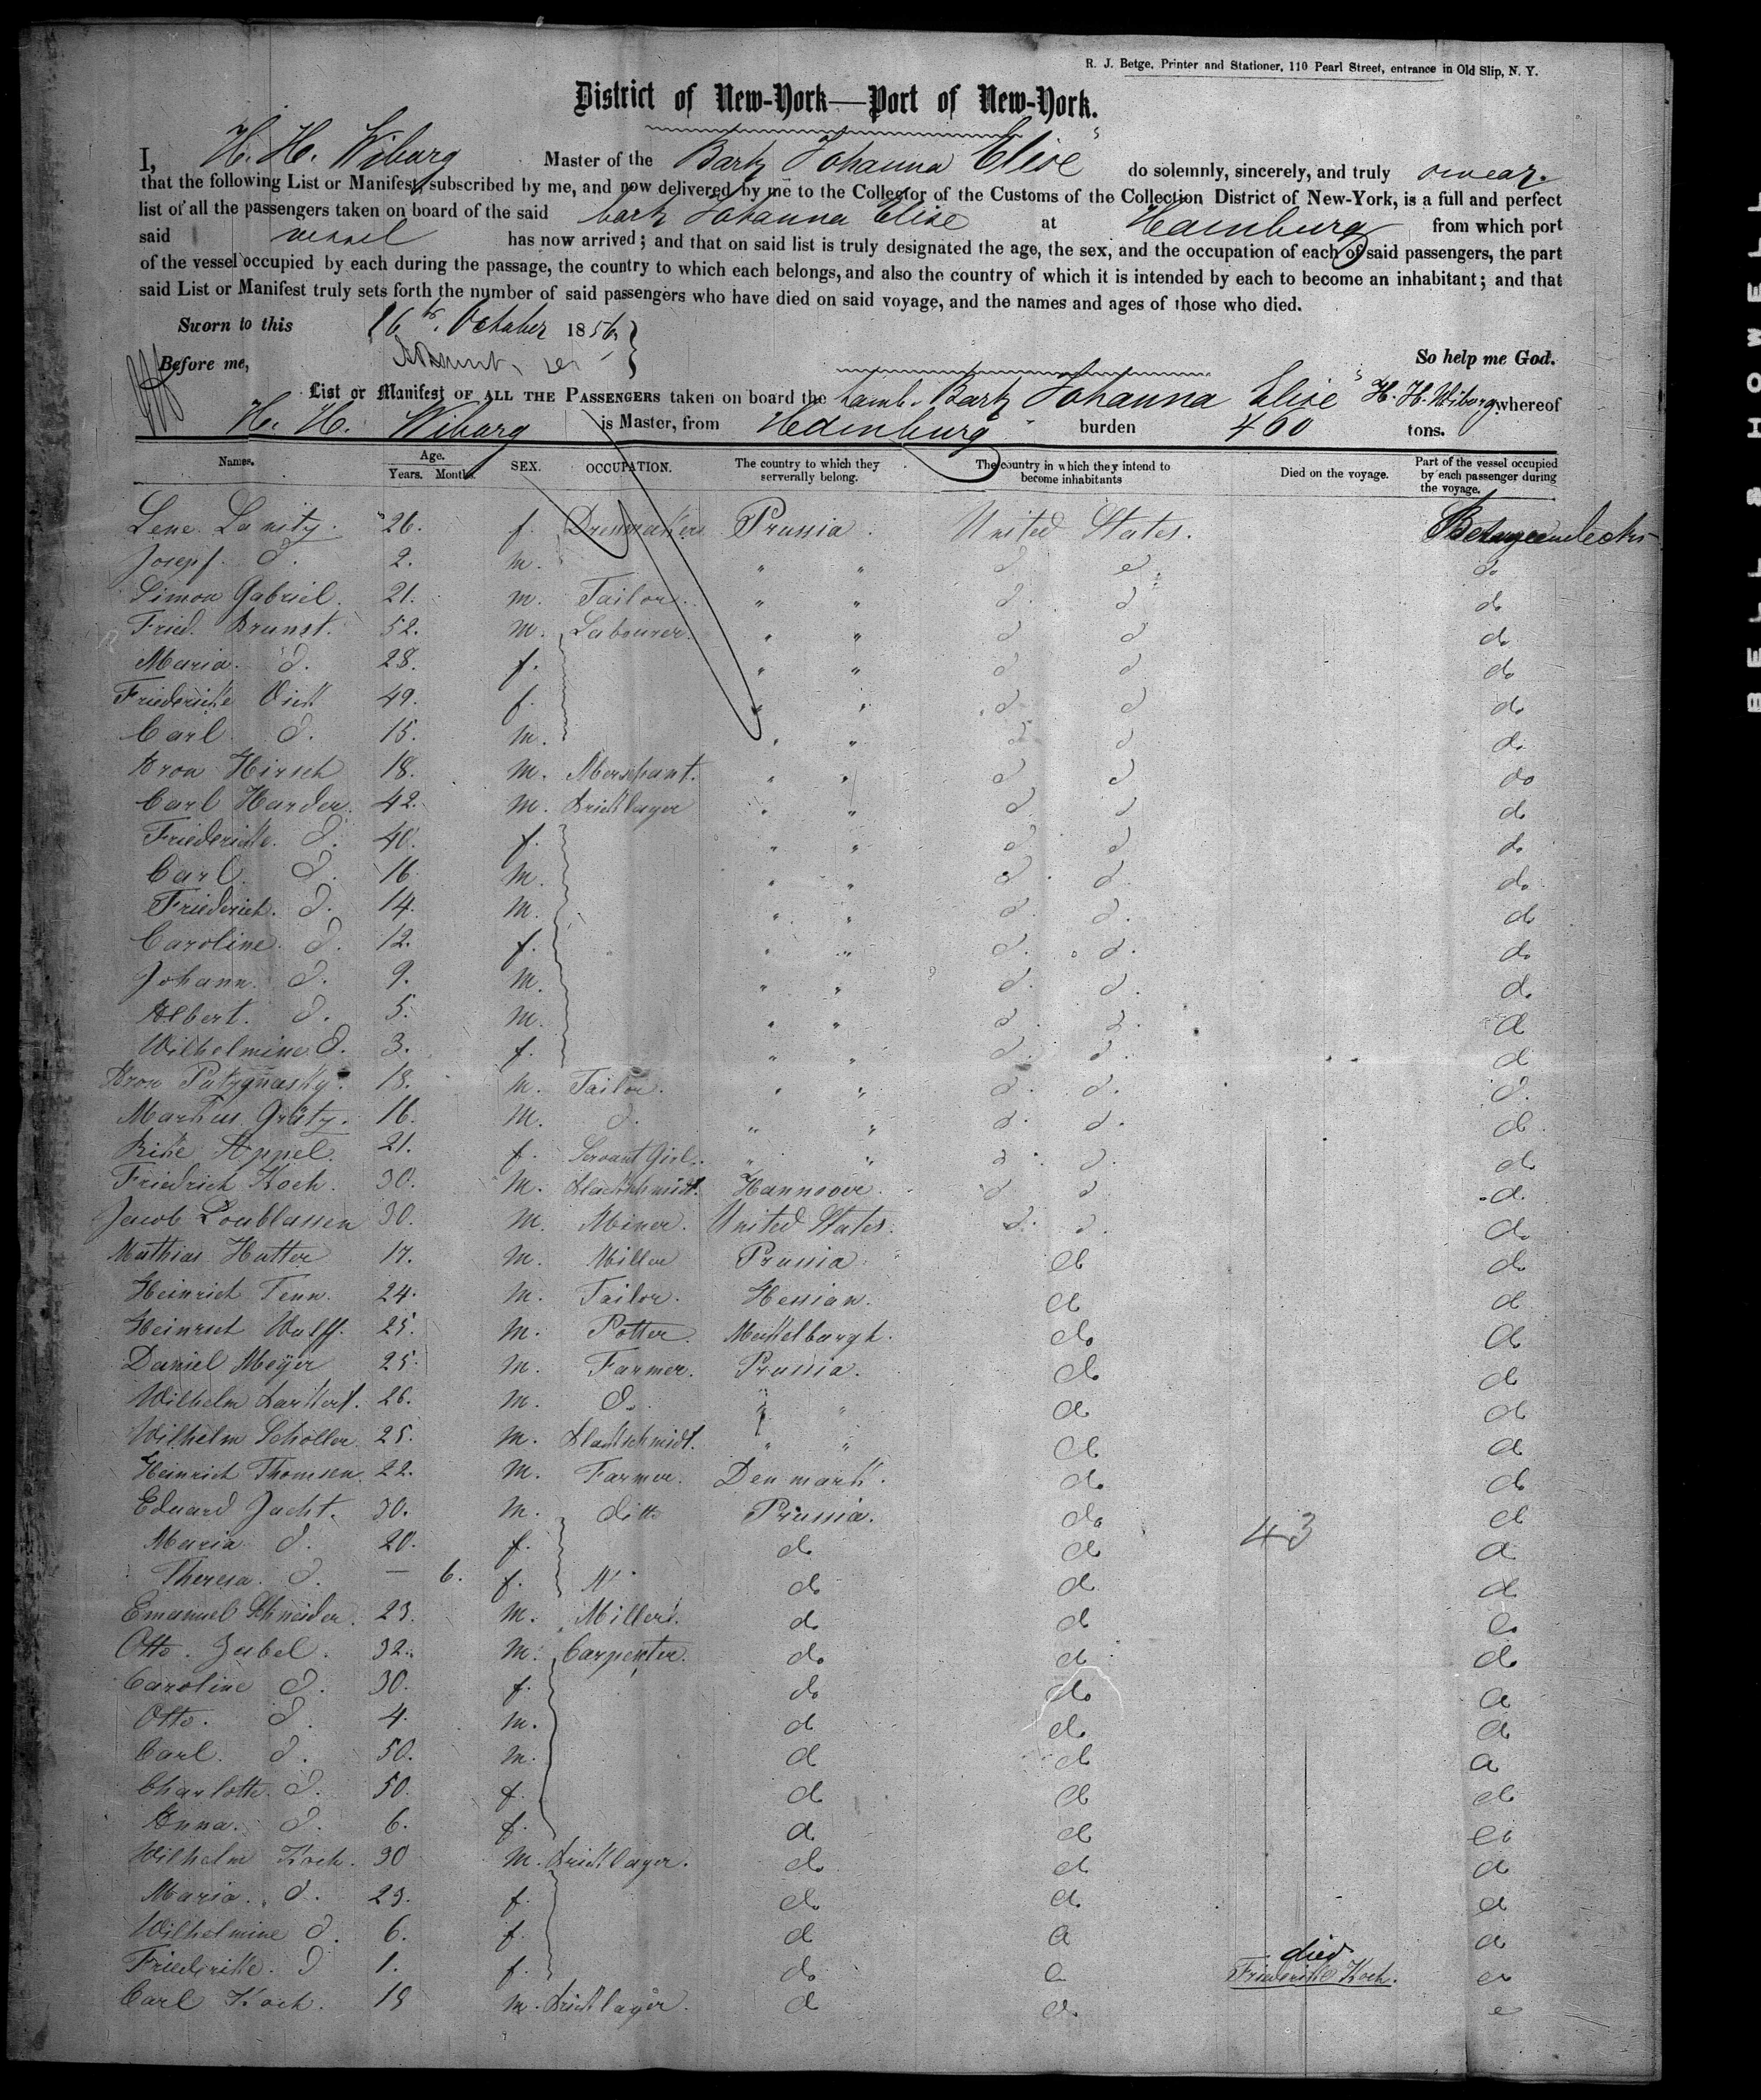 R. J. Betge, Printer and Stationer, 110 Pearl Street, entrance in Old Slip, N. Y.
District of New-York—Port of New-York.
I, H. H. Wiburg Master of the Bark Johanna Elise do solemnly, sincerely, and truly swear.
that the following List or Manifest, subscribed by me, and now delivered by me to the Collector of the Customs of the Collection District of New-York, is a full and perfect
list of all the passengers taken on board of the said bark Johanna Elise at Hamburg from which port
said vessel has now arrived; and that on said list is truly designated the age, the sex, and the occupation of each of said passengers, the part
of the vessel occupied by each during the passage, the country to which each belongs, and also the country of which it is intended by each to become an inhabitant; and that
said List or Manifest truly sets forth the number of said passengers who have died on said voyage, and the names and ages of those who died.
Sworn to this 16th October 1856
Before me, So help me God.
List or Manifest OF ALL THE PASSENGERS taken on board the hamb. Bark Johanna Elise H. H. Wiburg whereof
H. H. Wiburg is Master, from Hamburg burden 460 tons.
Names. Age. Years. Months. SEX. OCCUPATION. The country to which they serverally belong. The country in which they intend to become inhabitants Died on the voyage. Part of the vessel occupied by each passenger during the voyage.
Lene 26. f. Dressmaker Prussia. United States. Betweendecks
Josepf. d. 2. m. " " d d do
Simon Gabriel. 21. m. Tailor. " " d. d do
Fried. Brunst. 52. m. Labourer. " " d d do
Maria. d. 28. f. " " d d do
Friedericke 49. f. " " d d do
Carl d. 15. m. " " d d do
Aron Hirsch 18. m. Merschant. " " d d do
Carl Harder. 42. m. Bricklayer " " d d do
Friedericke. d. 40. f. " " d d do
Carl. d. 16 m. " " d. d. do
Friederich. d. 14. m. " " d. d. do
Caroline. d. 12. f. " " d. d. do
Johann. d. 9. m. " " d. d. do
Albert. d. 5. m. " " d. d. do
Wilhelmine d. 3. f. " " d. d. do
Aron 18. m. Tailor. " " d. d. d.
Markus Grätz. 16. m. d. " " d. d. do
Rike Appel. 21. f. Servant Girl. " " d. d. do
Friedrich Koch. 30. m. Blackschmidt. Hannover. d d do
Jacob 30. m. Miner. United States. d. d. do
Mathias Hutter 17. m. Miller Prussia do do
Heinrich Tenn. 24. m. Tailor. Hessian. do do
Heinrich Wulff. 25. m. Potter. Mecklburgh. do do
Daniel Meÿer 25. m. Farmer. Prussia. do do
Wilhelm 26. m. d. " " do do
Wilhelm Scholler 25. m. Blackschmidt. " " do do
Heinrich Thomsen. 22. m. Farmer. Denmark. do do
Eduard Jacht. 30. m. ditto Prussia. do 43 do
Maria d. 20. f. do do do
Theresa. d. — 6. f. do do do
Emanuel Schneider. 23. m. Miller. do do do
Otto. Zabel. 32. m. Carpenter. do do do
Caroline d. 30. f. do do do
Otto. d. 4. m. do do do
Carl. d. 50. m. do do do
Charlotte. d. 50. f. do do do
Anna. d. 6. f. do do do
Wilhelm Koch. 30 m. Bricklayer. do do do
Maria. d. 23. f. do do do
Wilhelmine d. 6. f. do do do
died
Friedericke. d 1. f. do do Friedericke Koch. do
Carl Koch. 19 m. Bricklayer. do do
BELL & HOWELL